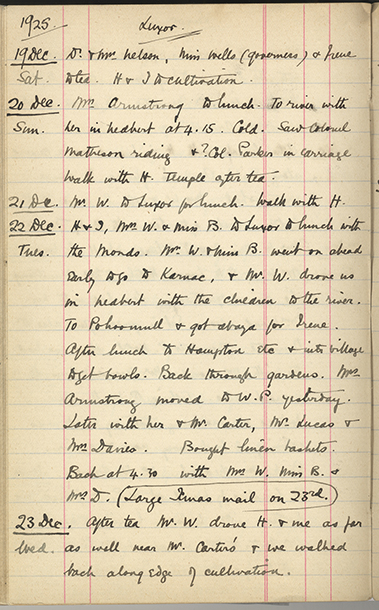 1925 Luxor.
19 Dec. Dr. & Mrs Nelson, Miss Wells (governess) & Irene
Sat. to tea. H & I to cultivation.
20 Dec. Mrs Armstrong to lunch. To river with
Sun. her in hedbert at 4.15. Cold. Saw Colonel
Matheson riding & ? Col. Parker in carriage
walk with H. temple after tea.
21 Dec. Mr. W. to Luxor for lunch. Walk with H.
22 Dec. H & I, Mrs W. & Miss B. to Luxor to lunch with
Tues. the Monds. Mrs W. & Miss B. went on ahead
early to go to Karnac, & Mr. W. drove us
in hedbert with the children to the river.
To & got abaya for Irene.
After lunch to Hampton etc & into village
to get bowls. Back through gardens. Mrs
Armstrong moved to W.P. yesterday.
Later with her & Mr. Carter, Mr. Lucas &
Mrs Davies. Bought linen baskets.
Back at 4.30 with Mrs W. Miss B. &
Mrs D. (Large Xmas mail on 23rd.)
23 Dec. After tea Mr. W. drove H. & me as far
Wed. as well near Mr. Carter's & we walked
back along edge of cultivation.